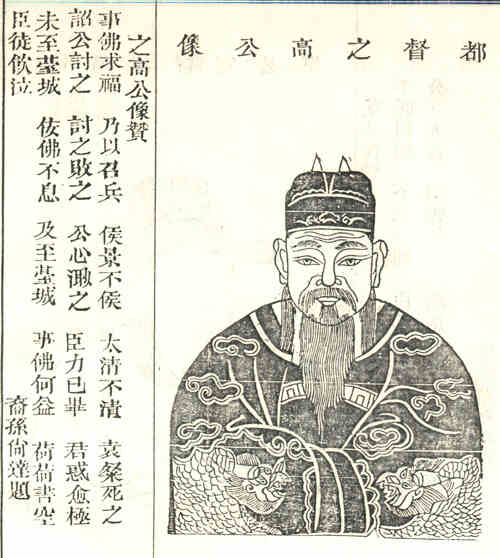 都督之高公像
之高公像贊
事佛求福 乃以召兵 侯景不侯 太清不清 袁粲死之
詔公討之 討之敗之 公心漑之 臣力已畢 君惑愈極
未至臺城 佞佛不息 及至臺城 事佛何益 荷荷書空
臣徒飲泣 裔孫尙達題